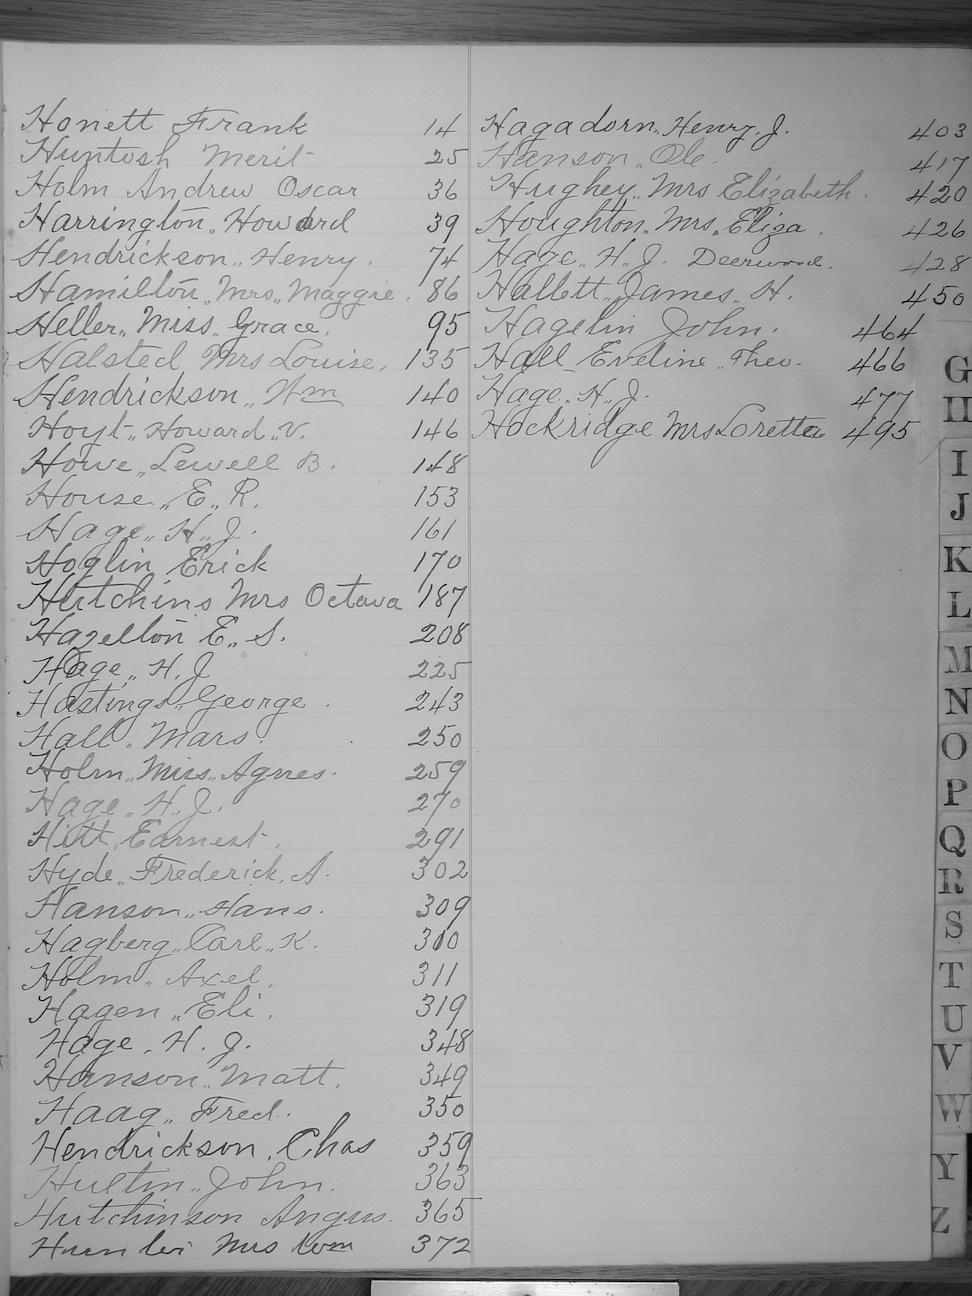 Honett Frank 14
Huntosh Merit 25
Holm Andrew Oscar 36
Harrington,, Howard 39
Hendrickson,, Henry. 74
Hamilton,, Mrs,, Maggie. 86
Heller,, Miss,, Grace. 95
Halsted Mrs Louise. 135
Hendrickson,, Wm 140
Hoyt,, Howard,, V. 146
Howe,, Lewell B. 148
House,, E,, R. 153
Hage,, H,, J. 161
Hoglin Erick 170
Hutchins Mrs Octava 187
Hazelton E,, S. 208
Hage,, H. J 225
Hastings,, George. 243
Hall,, Mars. 250
Holm,, Miss,, Agnes. 259
Hage,, H,, J. 270
Hitt,, Earnest. 291
Hyde,, Frederick. A. 302
Hanson,, Hans. 309
Hagberg,, Carl,, K. 310
Holm,, Axel. 311
Hagen,, Eli. 319
Hage,, H. J. 348
Hanson,, Matt. 349
Haag,, Fred. 350
Hendrickson. Chas 359
Hultin,, John. 363
Hutchinson Angus. 365
Mrs 372
Hagadorn,, Henry. J. 403
Hanson,, Ole. 417
Hughey,, Mrs Elizabeth. 420
Houghton,, Mrs,, Eliza. 426
Hage,, H,, J. Deerwood. 428
Hallett,, James,, H. 450
Hagelin John. 464
Hall Eveline Theo. 466
Hage,, H,, J. 477
Hockridge Mrs Loretta 495
G
H
I
J
K
L
M
N
O
P
Q
R
S
T
U
V
W
Y
Z